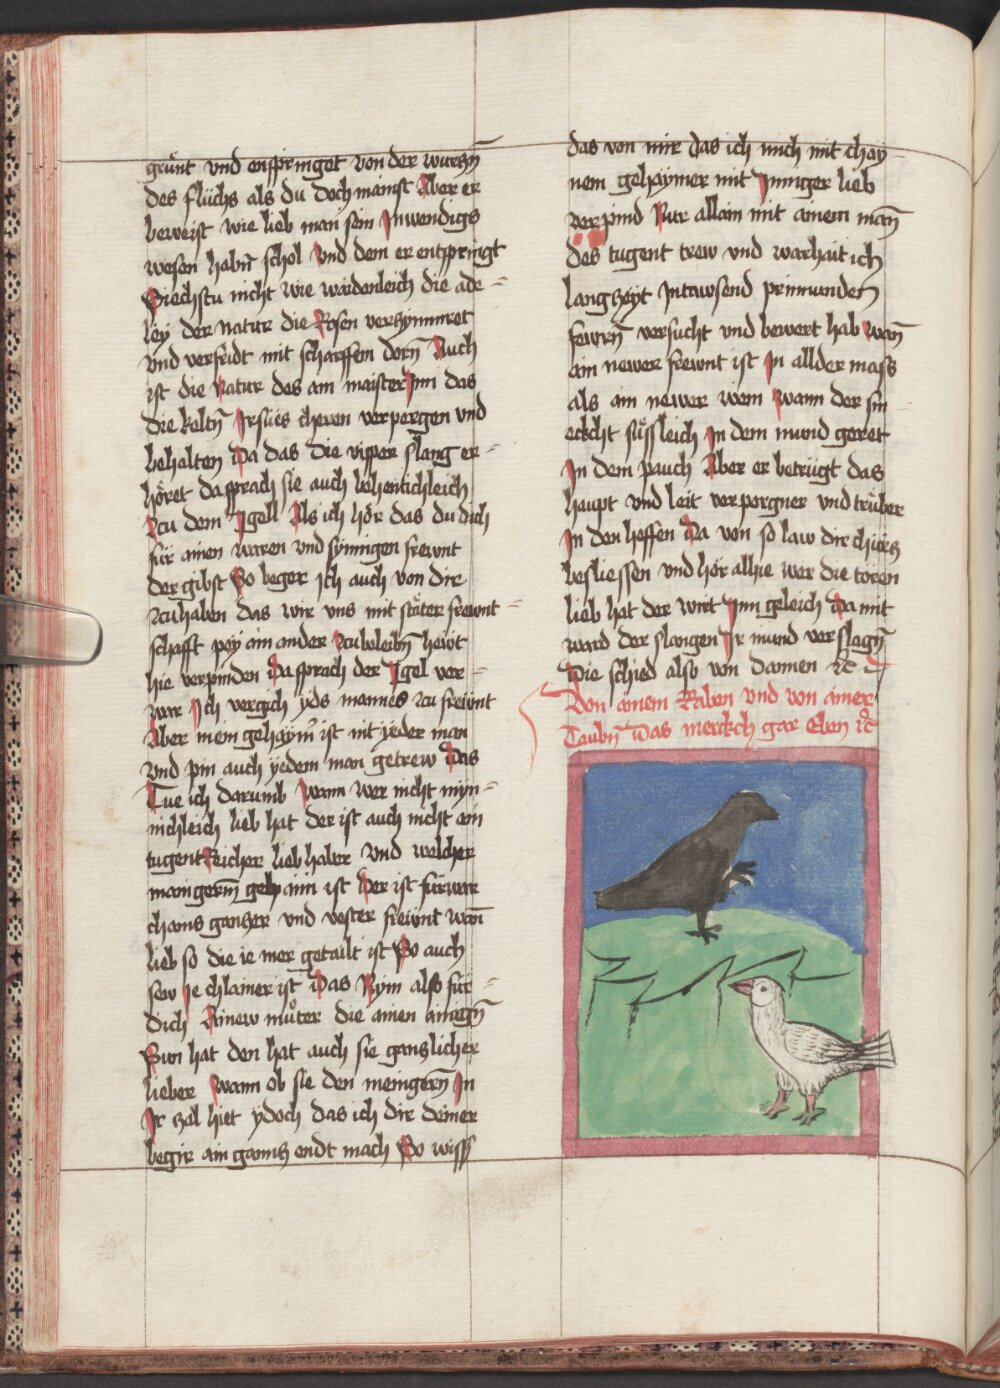 grünt vnd enspringet von der wurczn̄
des flüchs als du doch mainst Aber er
beweist wie lieb man sein Inwendigs
wesen habn̄ schol Vnd dem er entspringt
Siechstu nicht wie waidenleich die ade=
ley der natur die Rosen verzymmret
vnd verfridt mit scharffem dorn̄ Auch
ist die Natur des am maister Inn das
die keltn̄ Ir sües cheren verpergen vnd
behalten Da das die vipper slang er=
höret da sprach sie auch behentichleich
Zcu dem Igell Als ich hör das du dich
für ainen waren vnd synnigen frewnt
der gibst So beger ich auch von dir
zcu haben das wir vns mit stäter frewnt=
schafft pey ain ander zcu beleibn̄ hewt
hie verpinden Da sprach der Igel ver=
war Ich vergich yds mannes zcu frewnt
Aber mein gehaym̄ ist nit yeder man
vnd pin auch yedem man getrew Das
Tue ich darumb Wann wer nicht myn=
nichleich lieb hat der ist auch nicht ain
tugent Reicher lieb haber Vnd welcher
maingerm̄ gehaim ist Der ist fürwar
chains ganczer vnd vester frewnt wan̄
lieb so die ie mer getailt ist So auch
sew ie chlainer ist Das Nym also für
dich Ainew müter die ainen ainign̄
Sun hat den hat auch sie genczlicher
lieber Wann ob sie den meingern̄ In
Ir zal hiet ydoch das ich dir deiner
begir ain gancz endt mach So wiss
das von mir das ich mich mit chay=
nem gehaymer mit Inniger lieb
verpind Nur allain mit ainem man̄
des tugent trew vnd warhait ich
lang zeyt In tawsend prinnunden
fewrn̄ versucht vnd bewert hab Wan̄
ain newer frewnt ist In all der mass
als ain newer wein Wann der sm
ekcht süssleich In dem mund geret
In dem pauch Aber er betrügt das
haupt vnd leit verporgner vnd trüber
In den heffen Da von so law dir chürcz
besliessen vnd hör allhie wer die toren
lieb hat der wirt Inn geleich Da mit
ward der slangen Ir mund verslagn̄
Die schied also von dannen ꝛc
Von ainem Raben vnd von ainer
Taubn̄ Das merkch gar Eben ꝛc